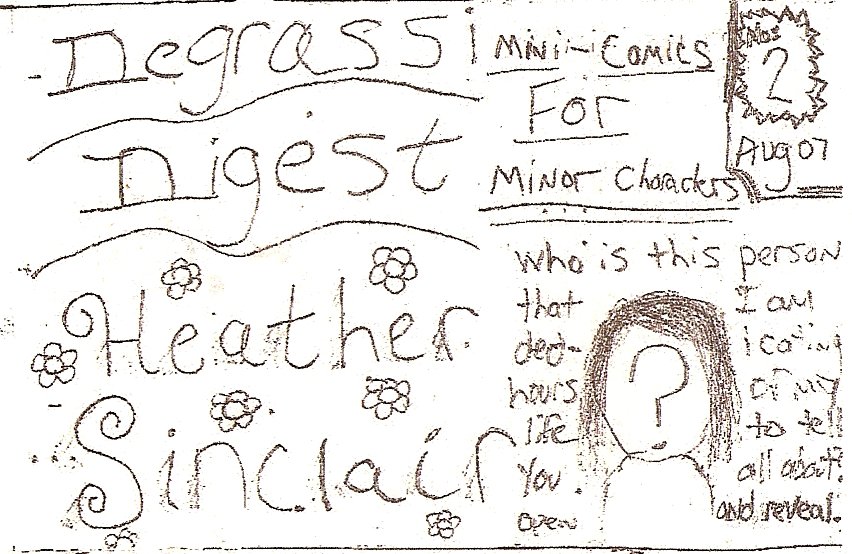 Degrassi
Digest
Mini-Comics
For
Minor Characters
No:
2
Aug 07
Heather
Sinclair
who is this person
that I am
ded- icating
hours of my
life to tell
You. all about?
open and reveal.
?